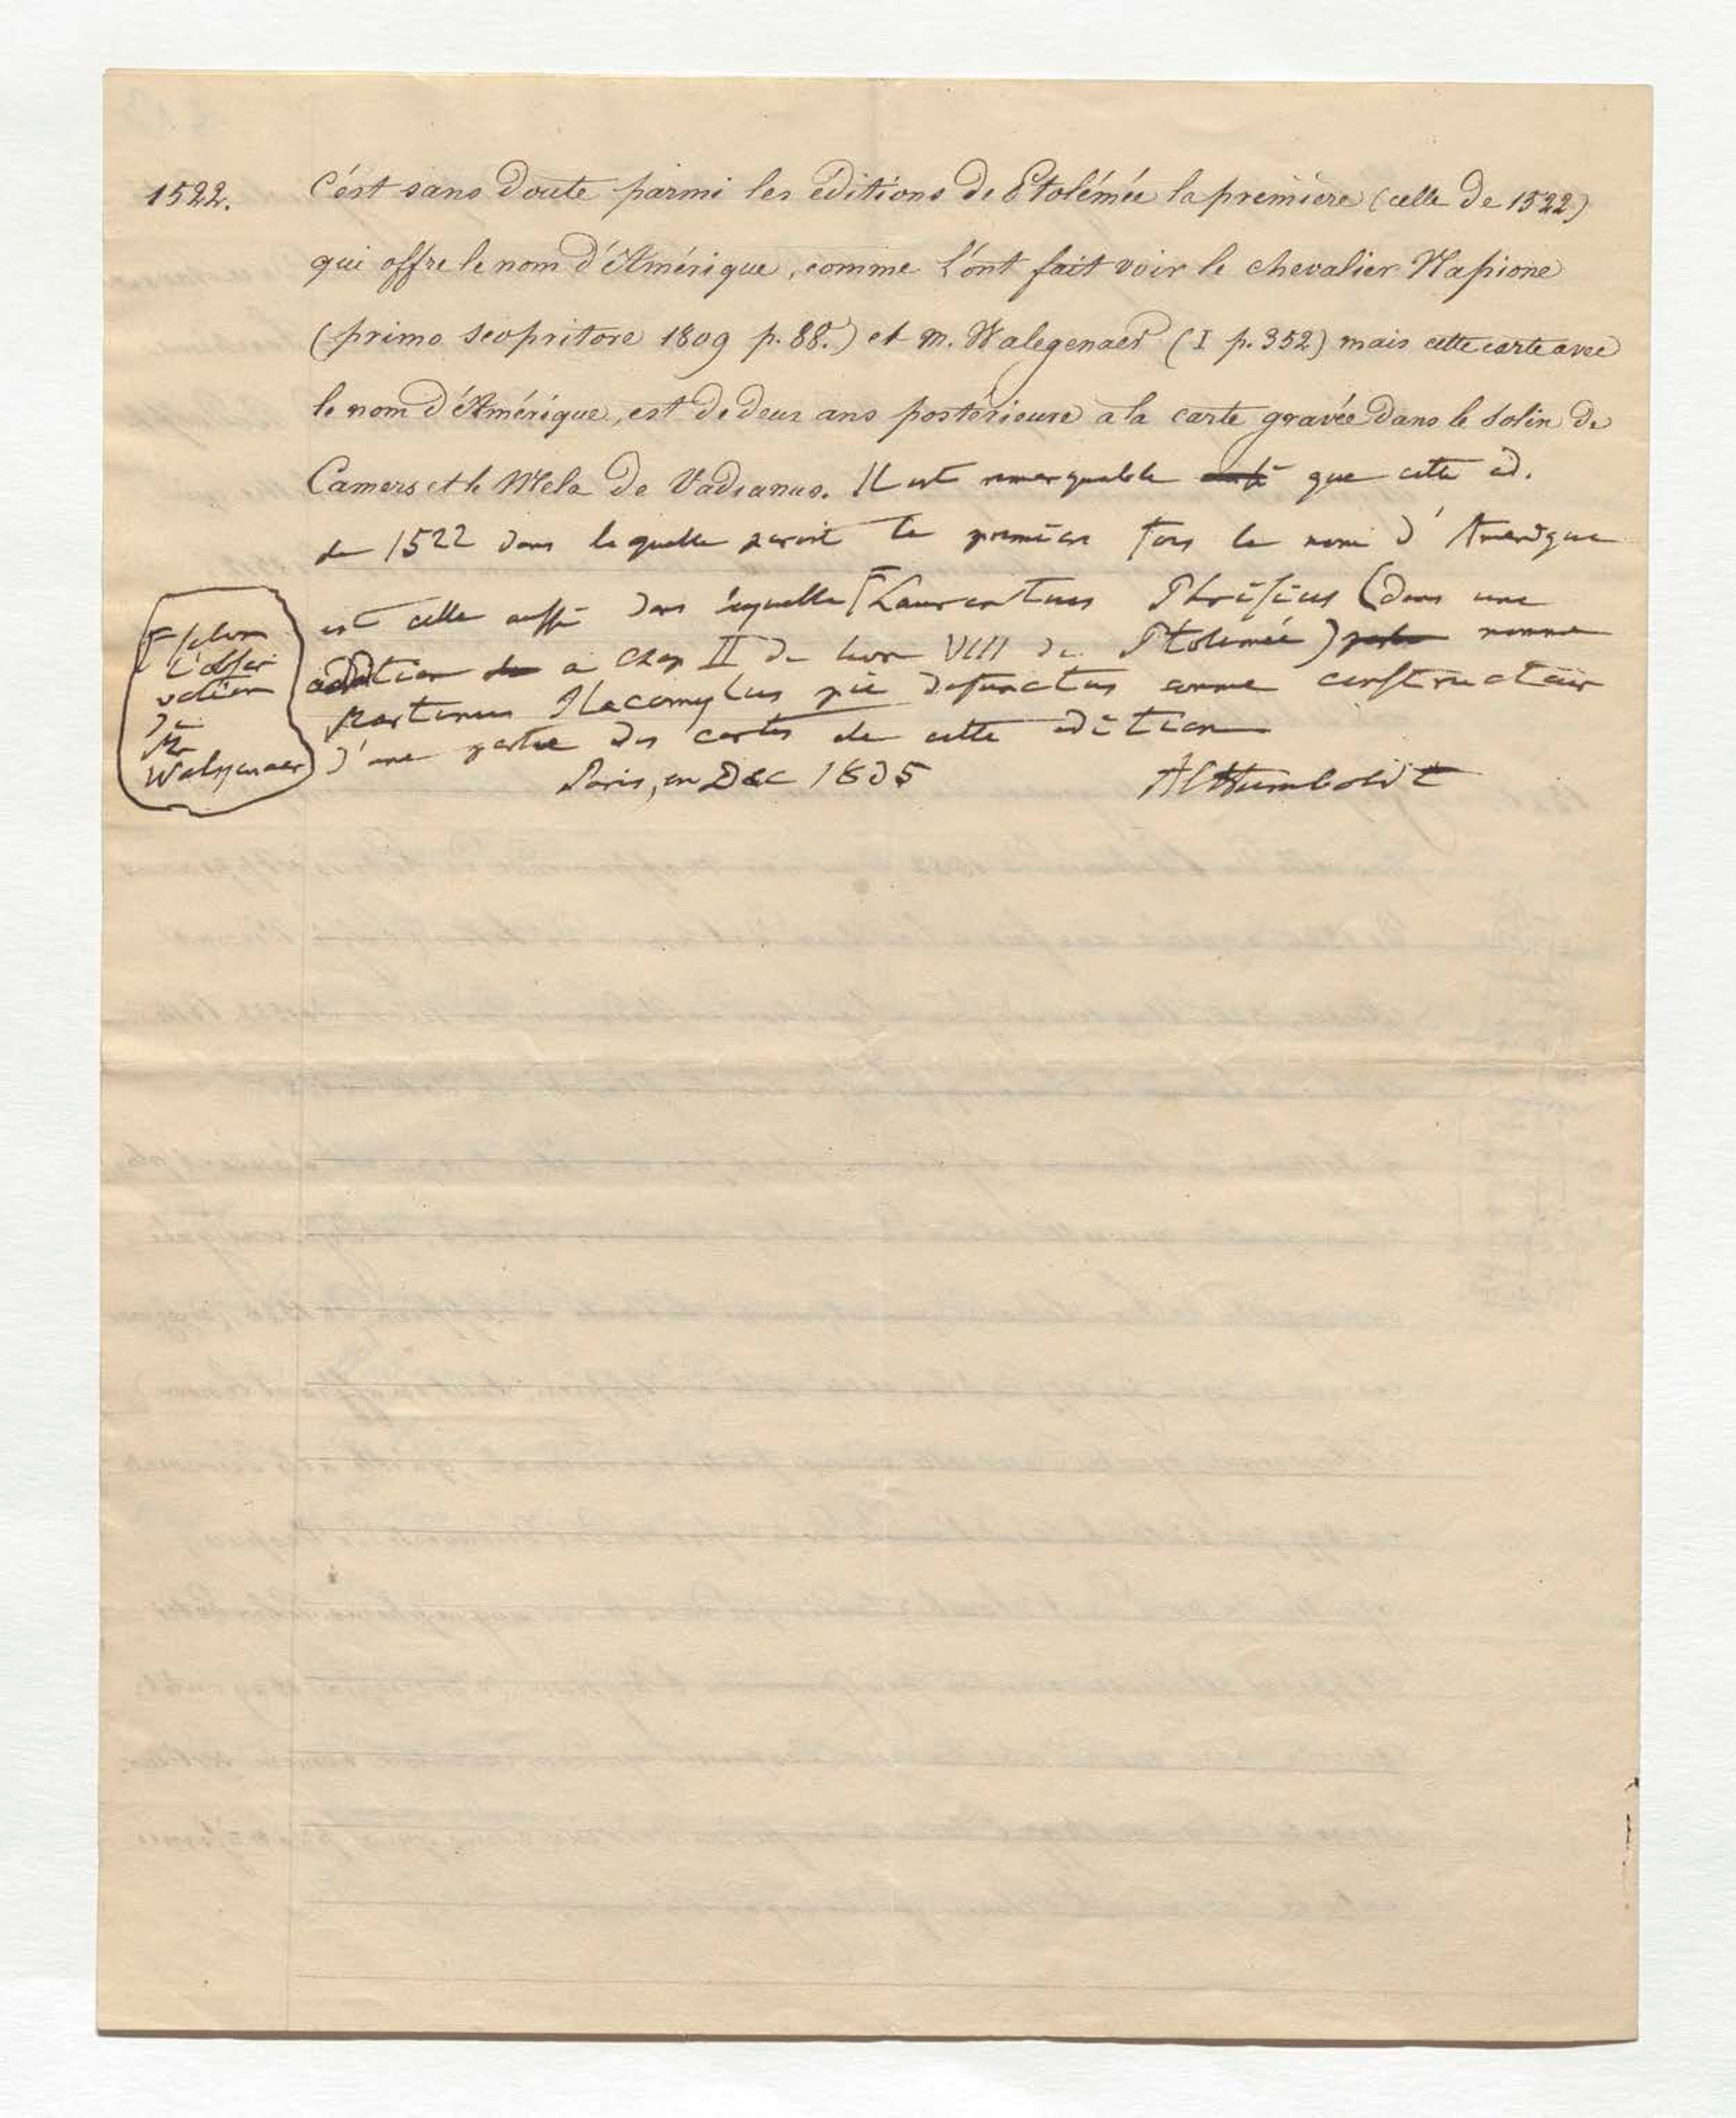 1522. C'ést sans doute parmi les éditions de Ptolémée la première (celle de 1522)
qui offre le nom d'Amérique, comme l'ónt fait voir le chevalier Napione
(primo scopritore 1809 p. 88.) et m. Walegenaer (I p. 352) mais cette carte avec
le nom d'Amérique, est de deux ans postérieure a la carte gravée dans le Solin de
Camers et le Mela de Vadianus. Il est remarquable que cette éd.
de 1522 dans laquelle paroit la première fois le nom d'Amerique
est celle aussi dans laquelle Γ Laurentius Phrisius (dans une
addition a Chap II du livre VIII de Ptolemée) nomme
Martinus Ilacomylus pie defunctus comme constructeur
d'une partie des cartes de cette edition
Γ selon
l'obser
vation
de
Mr
Walkenaer
Paris, en Dec 1835 AlHumboldt